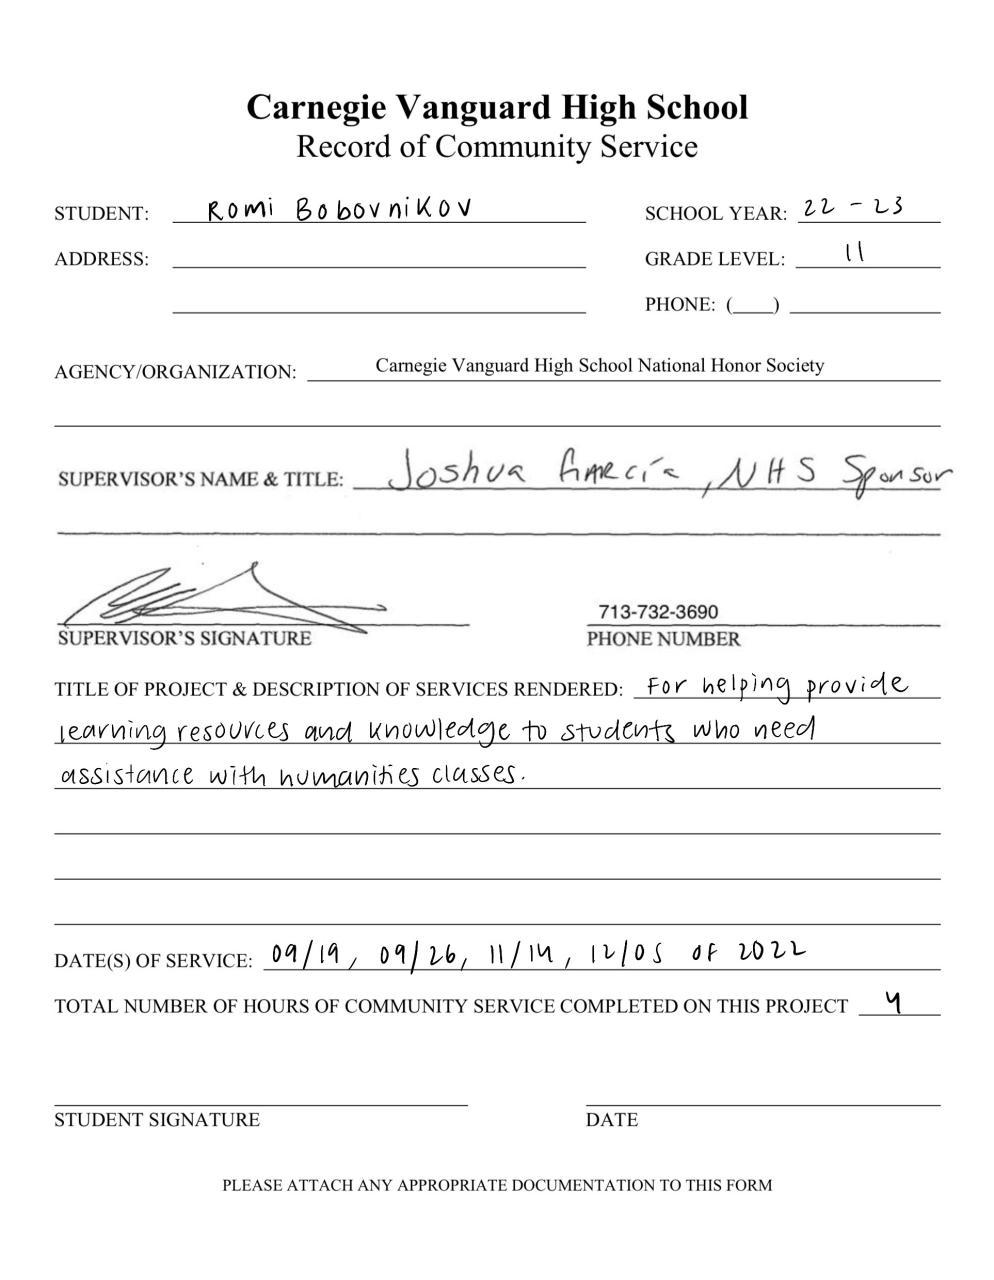 Carnegie Vanguard High School
Record of Community Service
STUDENT: Romi Bobovnikov SCHOOL YEAR: 22-23
ADDRESS: GRADE LEVEL: 11
PHONE: (____)
AGENCY/ORGANIZATION: Carnegie Vanguard High School National Honor Society
SUPERVISOR'S NAME & TITLE: Joshua García, NHS Sponsor
713-732-3690
SUPERVISOR'S SIGNATURE PHONE NUMBER
TITLE OF PROJECT & DESCRIPTION OF SERVICES RENDERED: For helping provide
learning resources and knowledge to students who need
assistance with humanities classes.
DATE(S) OF SERVICE: 09/19, 09/26, 11/14, 12/05 of 2022
TOTAL NUMBER OF HOURS OF COMMUNITY SERVICE COMPLETED ON THIS PROJECT 4
STUDENT SIGNATURE DATE
PLEASE ATTACH ANY APPROPRIATE DOCUMENTATION TO THIS FORM